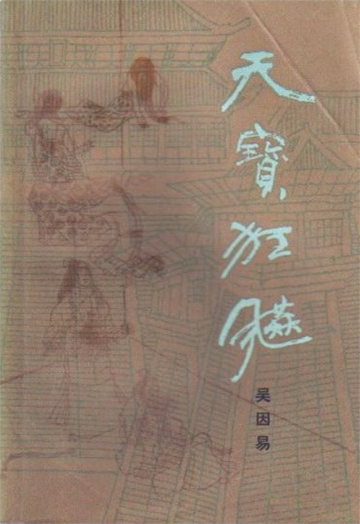 天寶狂飆
吴因易